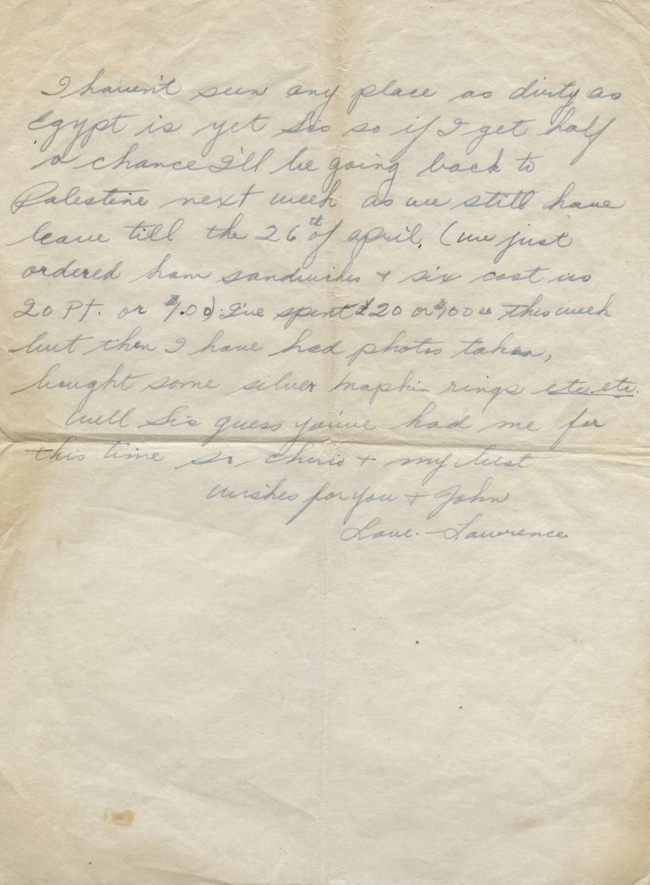 I haven't seen any place as dirty as
Egypt is yet Sis so if I get half
a chance I'll be going back to
Palestine next week as we still have
leave till the 26th of april. (we just
ordered ham sandwiches + six cost us
20 PT. or $1.00). I've spent £20 or $100 this week
but then I have had photos taken,
bought some silver napkin rings etc. etc.
Well Sis guess you've had me for
this time so cherio + my best
wishes for you + John
Love - Lawrence